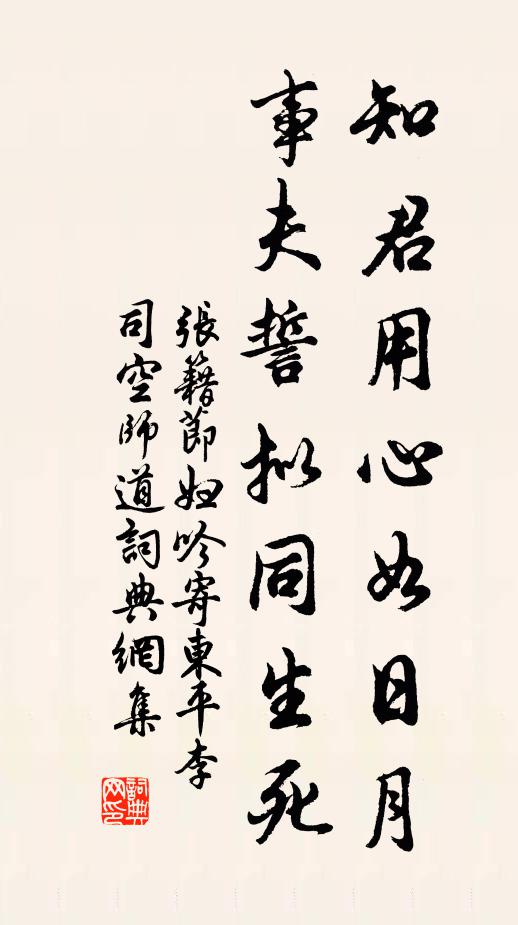 知君用心如日月
事夫誓拟同生死
張籍節婦吟寄東平李
司空師道詞典網集
詞典
网印